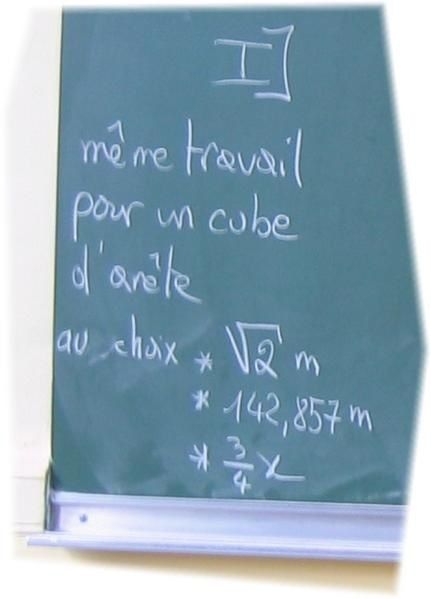 I]
même travail
pour un cube
d'arête
au choix * √2 m
* 142,857 m
* 3/4 x